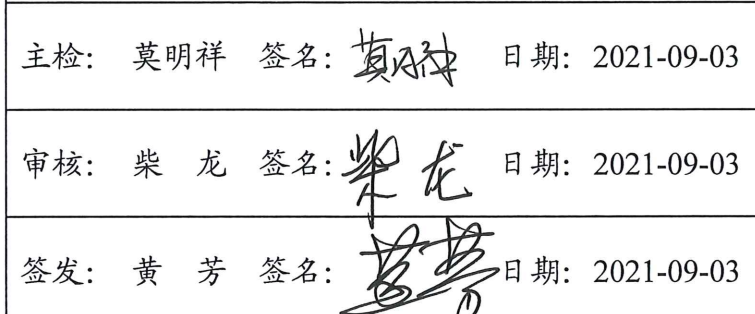 主检: 莫明祥 签名: 莫明祥 日期: 2021-09-03
审核: 柴 龙 签名: 柴龙 日期: 2021-09-03
签发: 黄 芳 签名: 黄芳 日期: 2021-09-03